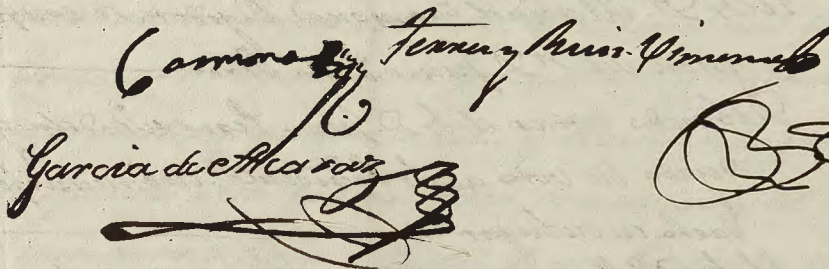 Carmona Ferrer y Ruiz-Ximenez
Garcia de Alcaraz